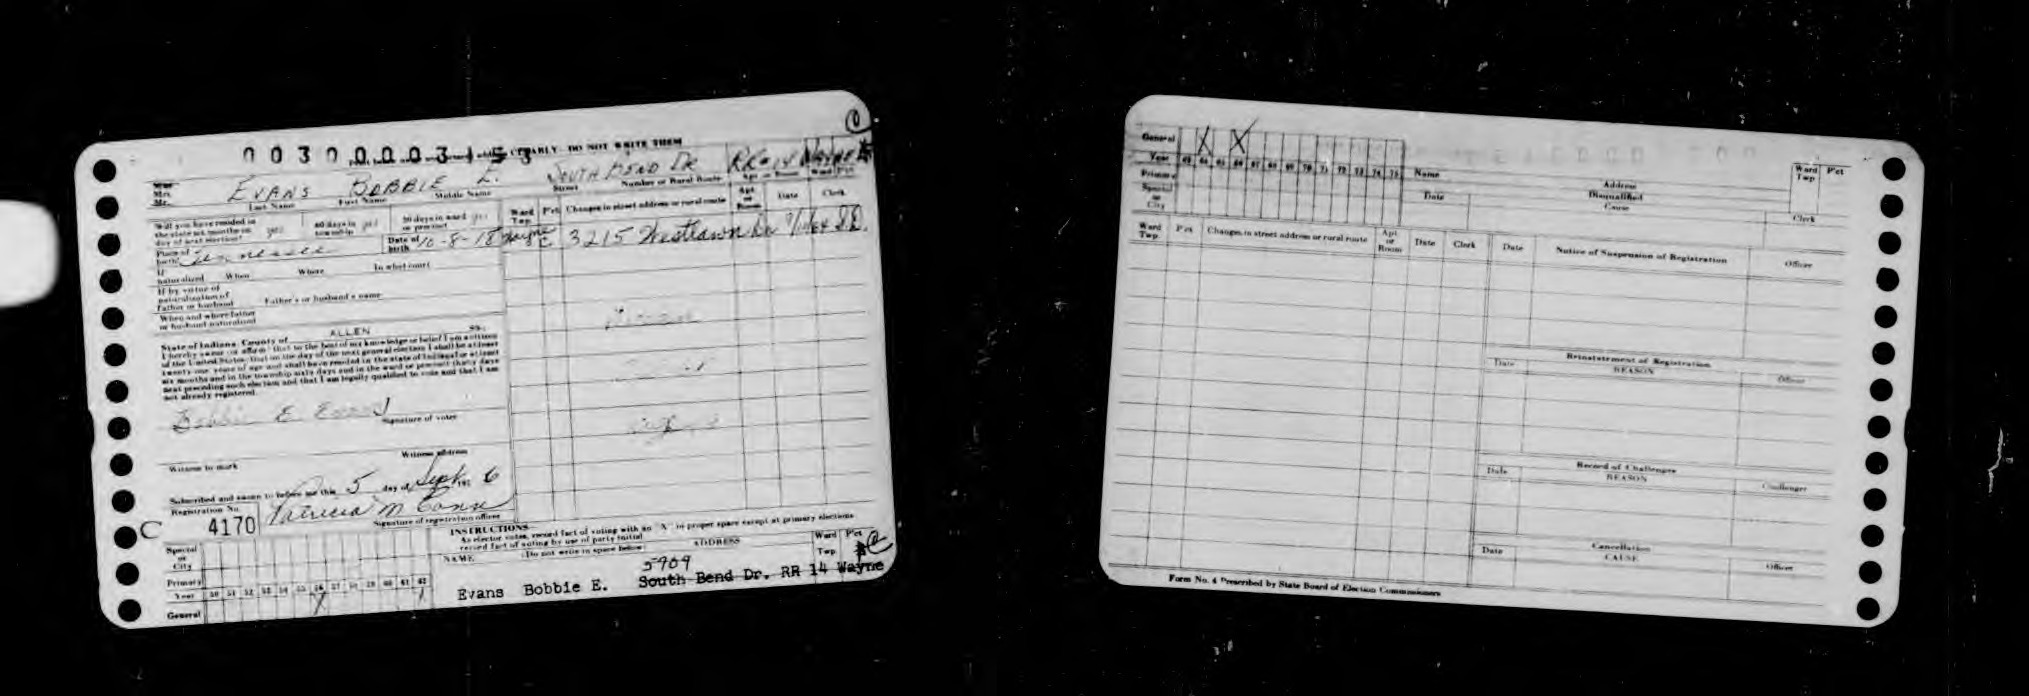 0 0 3 0 0 0 0 3 1 5 3
CLEARLY - DO NOT WRITE THEM
Mrs.
Mr.
EVANS BOBBIE E. SOUTH BEND DR RR #14 WAYNE
Last Name First Name Middle Name Street Number or Rural Route Apt. or Room Ward P'ct
Will you have resided in the state six months on day of next election? yes 60 days in township yes 30 days in ward or precinct yes
Ward Twp. P'ct Changes in street address or rural route Apt or Room Date Clerk
Place of birth? Tennessee Date of birth 10-8-18
Wayne C 3215 Westlawn Dr
If naturalized When Where In what court
If by virtue of naturalization of Father or husband Father's or husband's name
When and where father or husband naturalized
State of Indiana, County of ALLEN SS:
I hereby swear (or affirm) that to the best of my knowledge or belief I am a citizen
of the United States; that on the day of the next general election I shall be at least
twenty-one years of age and shall have resided in the state of Indiana for at least
six months and in the township sixty days and in the ward or precinct thirty days
next preceding such election and that I am legally qualified to vote and that I am
not already registered.
Bobbie E Evans
Signature of voter
Witness to mark Witness address
Subscribed and sworn to before me this 5 day of Sept 195 6
Registration No.
C 4170
Patricia M
Signature of registration officer
INSTRUCTIONS
As elector votes, record fact of voting with an "X" in proper space except at primary elections
record fact of voting by use of party initial
(Do not write in space below)
NAME ADDRESS Ward Twp P'ct
Special or City
Primary
Year 50 51 52 53 54 55 56 57 58 59 60 61 62
General X
5909
Evans Bobbie E. South Bend Dr. RR 14 Wayne
General X X
Year 63 64 65 66 67 68 69 70 71 72 73 74 75
Primary
Special or City
Name Address Ward Twp P'ct
Date Disqualified Cause Clerk
Ward Twp. P'ct Changes in street address or rural route Apt or Room Date Clerk
Date Notice of Suspension of Registration Officer
Reinstatement of Registration
Date REASON Officer
Record of Challenges
Date REASON Challenger
Cancellation
Date CAUSE Officer
Form No. 4 Prescribed by State Board of Election Commissioners